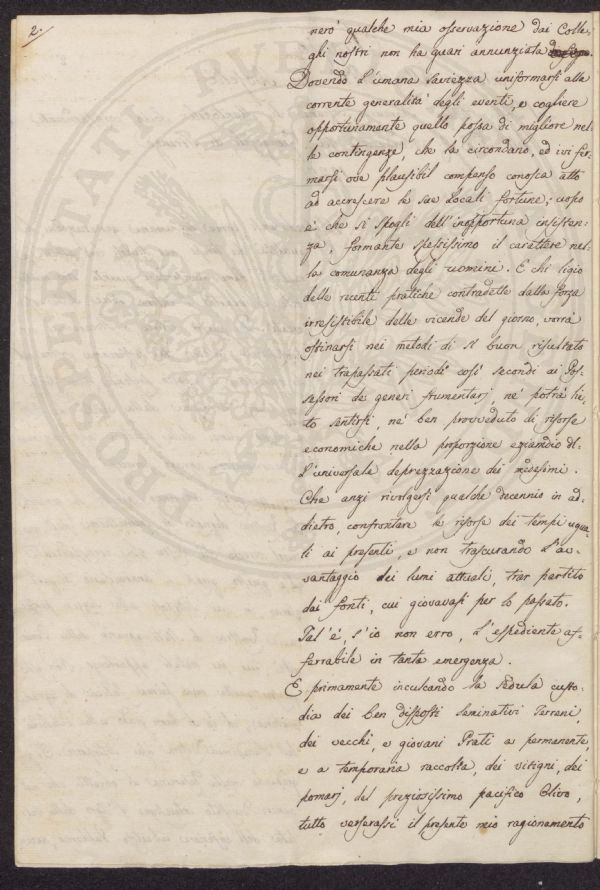 2.
nerò qualche mia osservazione dai Colle-
ghi nostri non ha guari annunziata
Dovendo l'umana saviezza uniformarsi alla
corrente generalità degli eventi, e cogliere
opportunamente quello possa di migliore nel-
le contingenze, che la circondano, ed ivi fer-
marsi ove plausibil compenso conosca atto
ad accrescere le sue locali fortune; uopo
è che si spogli dell'inopportuna insisten-
za, formante spessissimo il carattere nel-
la comunanza degli uomini. E chi ligio
delle recenti pratiche contradette dalla forza
irresistibile delle vicende del giorno, vorrà
ostinarsi nei metodi di sì buon risultato
nei trapassati periodi così secondi ai Pos-
sessori de generi frumentarj, nè potrà lie-
to sentirsi, nè ben provveduto di risorse
economiche nella proporzione eziandio del-
l'universale deprezzazione dei medesimi.
Che anzi rivolgersi qualche decennio in ad-
dietro, confrontare le risorse dei tempi ugua-
li ai presenti, e non trascurando l'av-
vantaggio dei lumi attuali, trar partito
dai fonti, cui giovavasi per lo passato.
Tal'è, s'io non erro, l'espediente af-
ferrabile in tanta emergenza.
E primamente inculcando la sedula custo-
dia dei ben disposti seminativi Terreni,
dei vecchi, e giovani Prati a permanente,
e a temporaria raccolta, dei vitigni, dei
pomarj, del preziosissimo pacifico Olivo,
tutto verserassi il presente mio ragionamento
PROSPERITATI PUBL